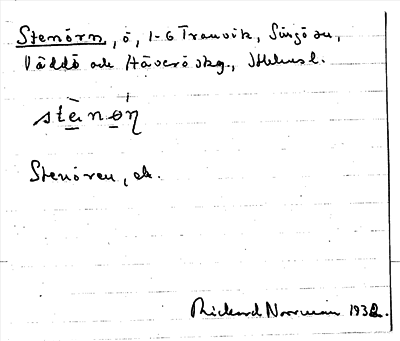 Stenörn, ö, 1-6 Tranvik, Singö sn,
Väddö och Häverö skg., Sthlms l.
stènöń
Stenören, ek.
Rickard Norrman 1932.